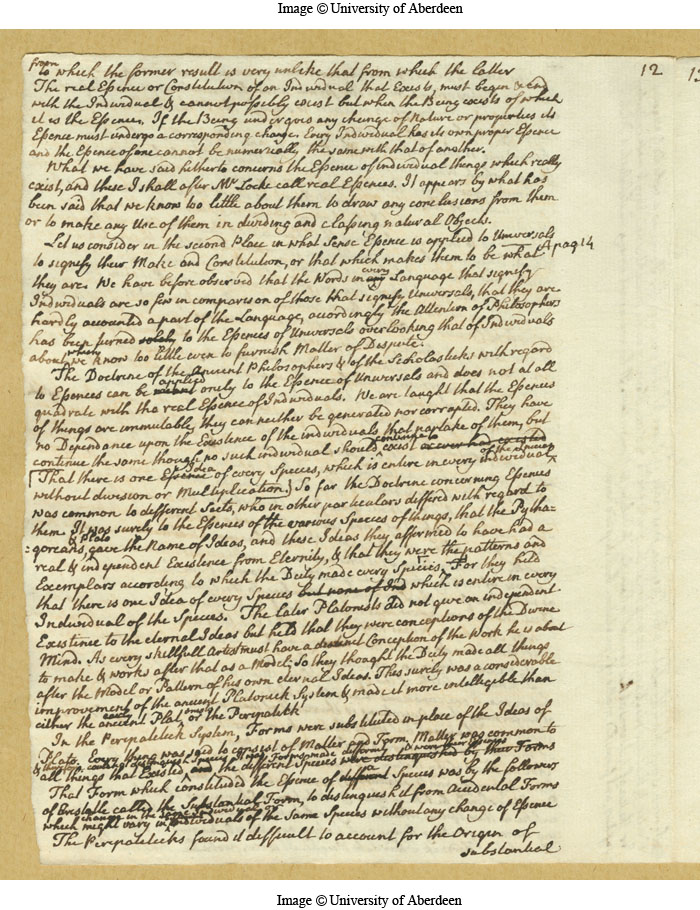 Image © University of Aberdeen
12
from
to which the former result is very unlike that from which the latter
The real Essence or Constitution of an Individual that Exists, must begin & end
with the Individual & cannot possibly exist but when the Being exists of which
it is the Essence. If the Being undergoes any change of Nature or properties its
Essence must undergo a corresponding change. Every Individual has its own proper Essence
and the Essence of one cannot be numerically the same with that of another.
What we have said hitherto concerns the Essence of individual things which really
exist, and these I shall after Mr Locke call real Essences. It appears by what has
been said that we know too little about them to draw any conclusions from them
or to make any Use of them in dividing and classing natural Objects.
Let us consider in the second Place in what Sense Essence is applied to Universals
to signify their Make and Constitution, or that which makes them to be what pag 14
they are. We have before observed that the Words in any every Language that signify
Individuals are so few in comparison of those that signify Universals, that they are
hardly accounted a part of the Language, acordingly the Attention of Philosophers
has been turned solely to the Essences of Universals overlooking that of Individuals
about which we know too little even to furnish Matter of Dispute.
The Doctrine of the Ancient Philosophers & of the Scholasticks with regard
to Essences can be applied onely to the Essence of Universals and does not at all
quadrate with the real Essence of Individuals. We are taught that the Essences
of things are immutable, they can neither be generated nor corrupted. They have
no Dependance upon the Existence of the individuals that partake of them, but
continue the same though no such individual should continue to exist or ever had existed
That there is one Essence or Idea of every Species, which is entire in every individual of the Species
without division or Multiplication.) So far the Doctrine concerning Essences
was common to different Sects, who in other particulars differed with regard to
them. It was surely to the Essences of the various Species of things, that the Pytha=
=goreans, & Plato gave the Name of Ideas, and these Ideas they affirmed to have had a
real & independent Existence from Eternity, & that they were the patterns and
Exemplars according to which the Deity made every Species. For they held
that there is one Idea of every Species but none of Ind which is entire in every
Individual of the Species. The later Platonists did not give an independent
Existence to the eternal Ideas but held that they were conceptions of the Divine
Mind. As every skillfull Artist must have a distinct Conception of the Work he is about
to make & works after that as a Model; So they thought the Deity made all things
after the Model or Pattern of his own eternal Ideas. This surely was a considerable
improvement of the ancient Platonick System & made it more intellegible than
either the ancient Platonick or the Peripatetick
In the Peripatetick System, Forms were substituted in place of the Ideas of
Plato, Every thing was said to consist of Matter and Form, Matter was common to
all things that Existed and the different Species were distinguished by their Forms
That Form which constituted the Essence of a Species was by the followers
of Aristotle called the Substantial Form, to distinguish it from Accidental Forms
which might vary in Individuals of the Same Species without any change of Essence
The Peripateticks found it difficult to account for the Origin of
substantial
Image © University of Aberdeen